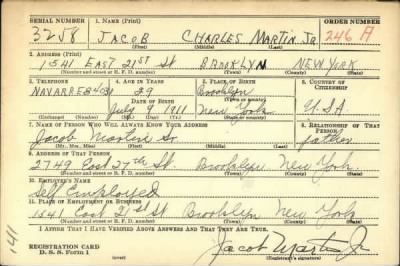 SERIAL NUMBER 1. NAME (Print) ORDER NUMBER
3258 JACOB CHARLES MARTIN JR 246 A
(First) (Middle) (Last)
2. ADDRESS (Print)
1541 EAST 21ST St BROOKLYN NEW YORK
(Number and street or R. F. D. number) (Town) (County) (State)
3. TELEPHONE 4. AGE IN YEARS 5. PLACE OF BIRTH 6. COUNTRY OF CITIZENSHIP
NAVARRE 29 Brooklyn
DATE OF BIRTH (Town or county)
July 9 1911 New York U.S.A
(Exchange) (Number) (Mo.) (Day) (Yr.) (State or country)
7. NAME OF PERSON WHO WILL ALWAYS KNOW YOUR ADDRESS 8. RELATIONSHIP OF THAT PERSON
Jacob Martin Sr father
(Mr., Mrs., Miss) (First) (Middle) (Last)
9. ADDRESS OF THAT PERSON
2749 East 27th St. Brooklyn New York
(Number and street or R. F. D. number) (Town) (County) (State)
10. EMPLOYER'S NAME
Self Employed
11. PLACE OF EMPLOYMENT OR BUSINESS
1541 East 21st St Brooklyn New York
(Number and street or R. F. D. number) (Town) (County) (State)
I AFFIRM THAT I HAVE VERIFIED ABOVE ANSWERS AND THAT THEY ARE TRUE.
REGISTRATION CARD
D. S. S. Form 1
Jacob Martin Jr
(Registrant's signature)
141